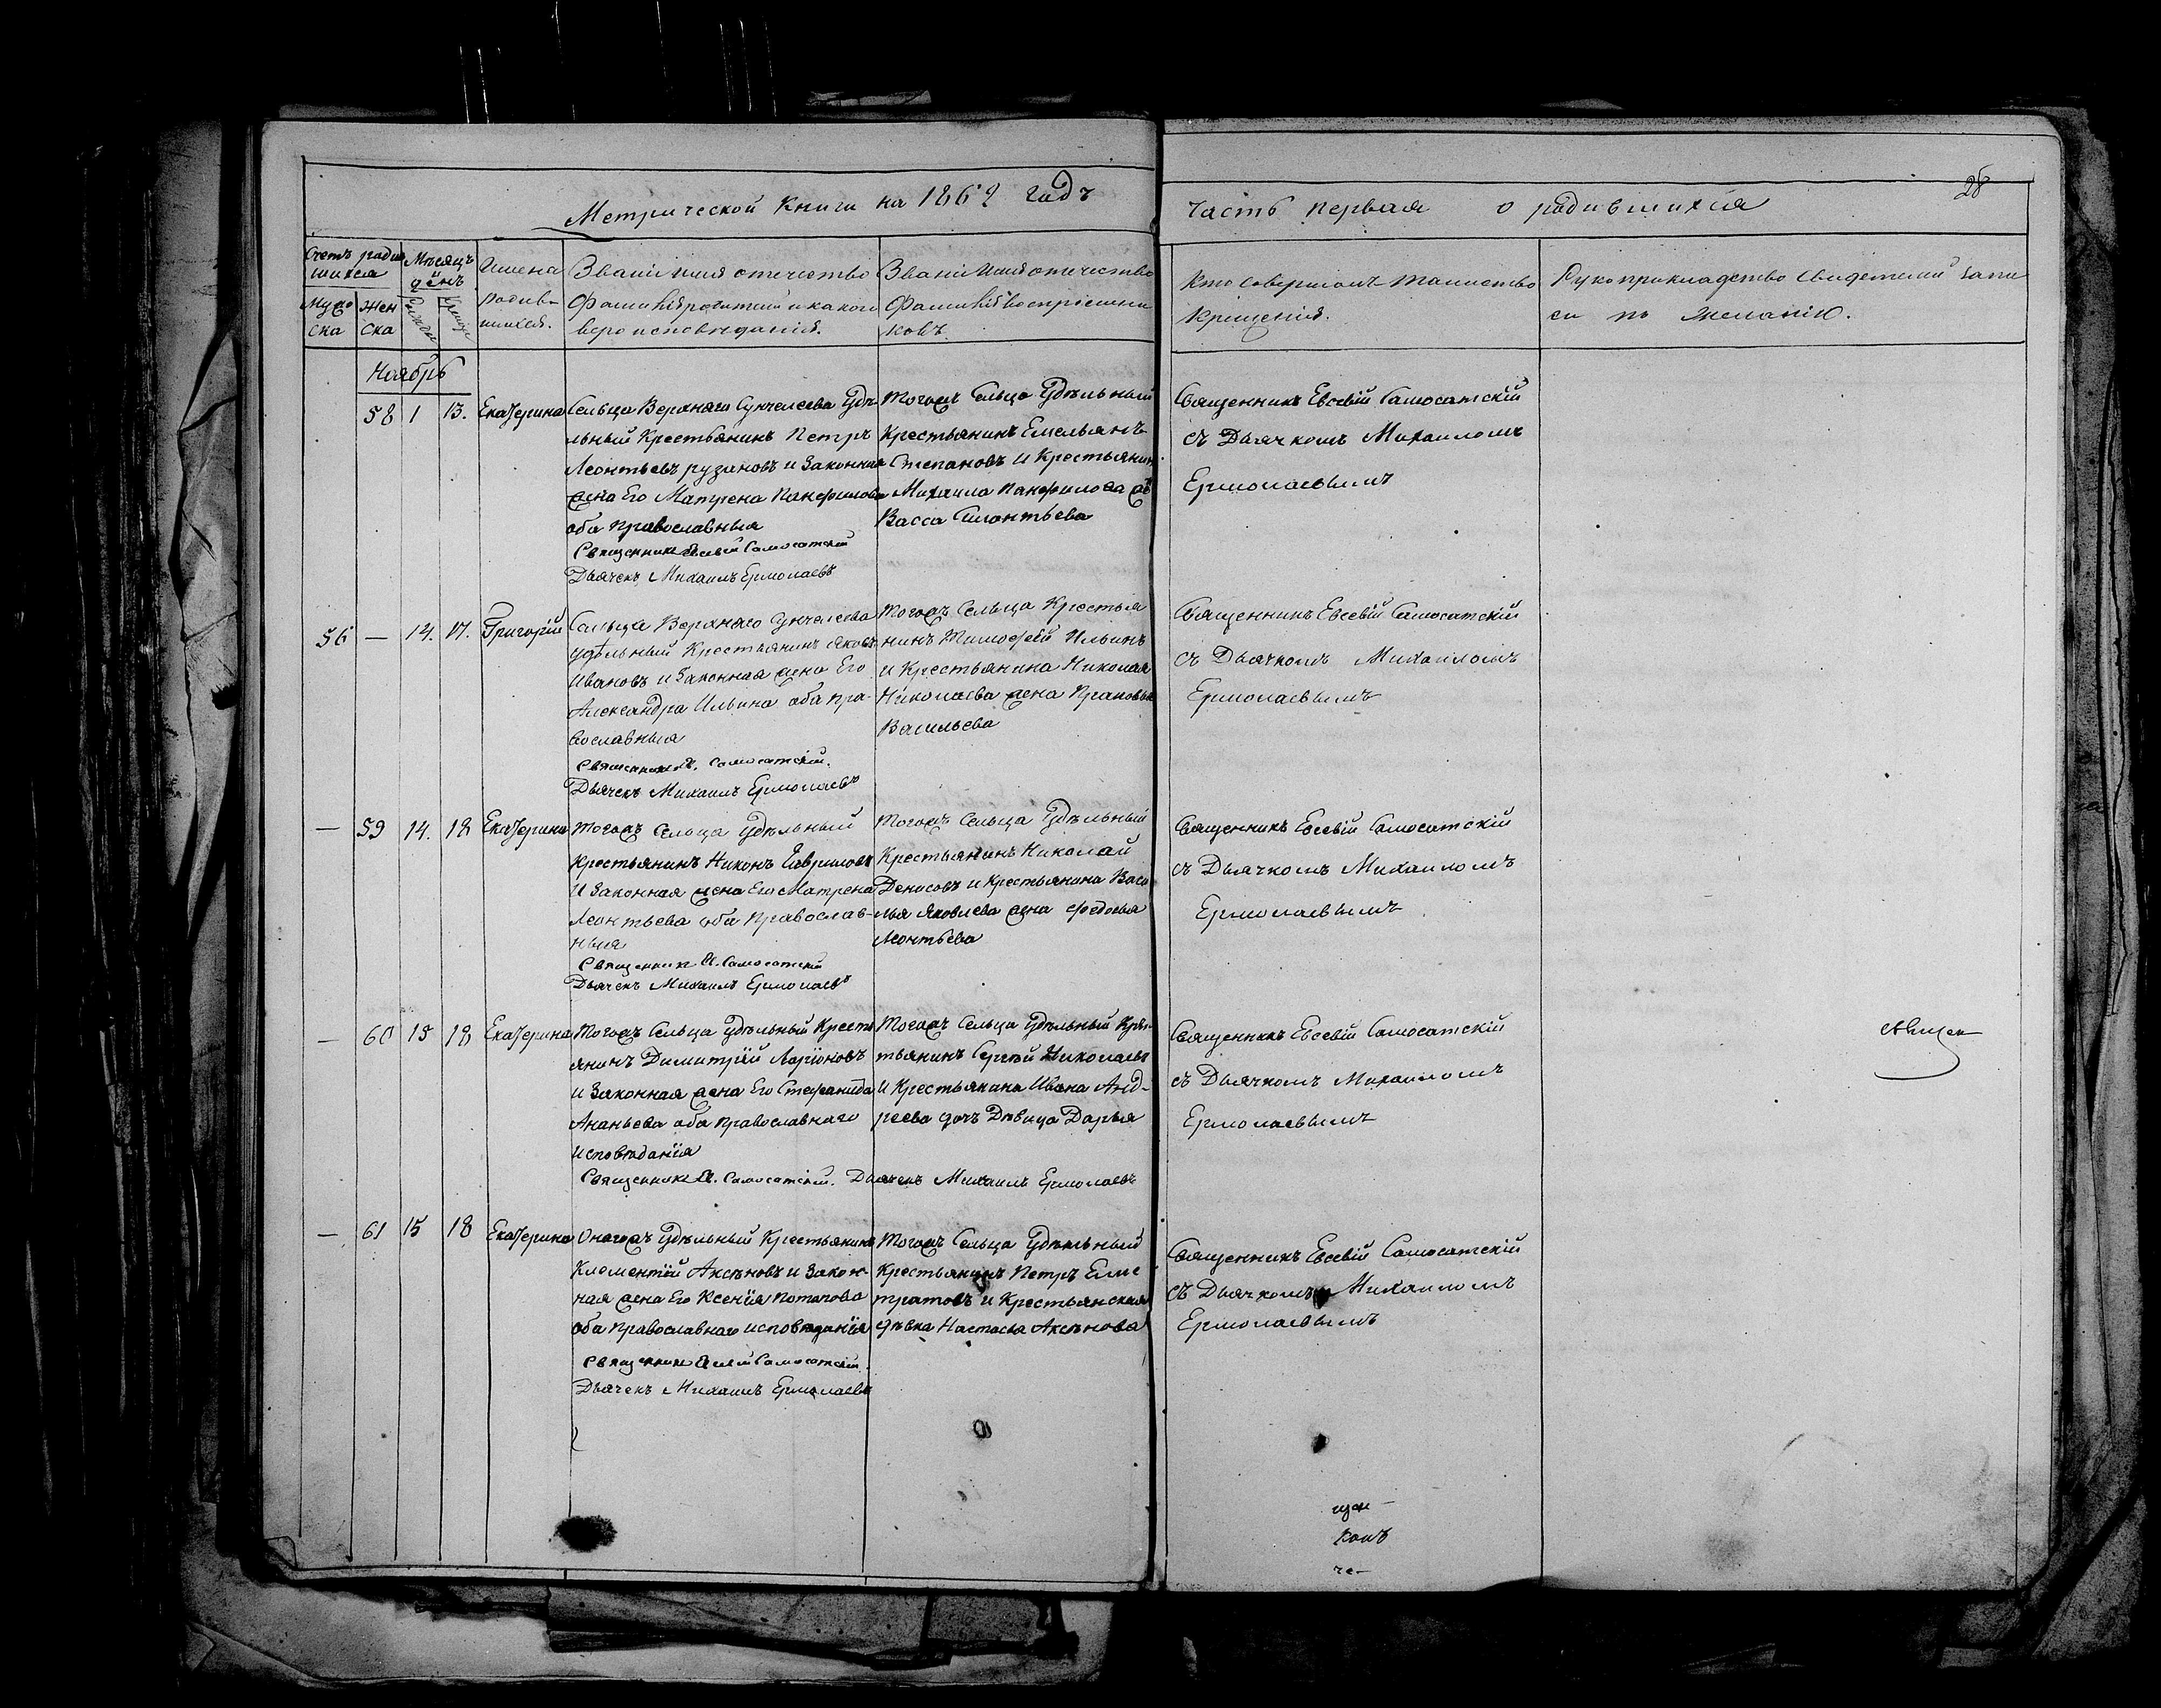 Метрической Книги на 1862 годъ
Часть первая о родившихся
28
Счетъ родив
шихся
Мѣсяцъ
день
Имена
родив-
шихся.
Муже
ска
Жен
ска
Званіе имя отечество
Фамилія родителей и какого
вероисповѣданія.
Званіе Имя отечество
Фамилія воспріемни
ковъ.
Кто совершалъ таинство
Крещенія.
Рукоприкладство свидетелей запи
си по желанію.
Ноябрь
58 1 13. Екатерина
Сельца Верхняго Сунчелеева Удѣ
льный Крестьянинъ Петръ
Леонтьевъ рузановъ и Законная
жена Его Матрена Панфилова
оба православныя
Священникъ Евсевій Самосатскій
Дьячекъ Михаилъ Ермолаевъ
Тогожъ Сельца Удѣльный
Крестьянинъ Емельянъ
Степановъ и Крестьянина
Михаила Панфилова
Васса
Священникъ Евсевій Самосатскій
съ Дьячкомъ Михаиломъ
Ермолаевымъ
56 — 14. 17. Григорій
Сельца Верхняго Сунчелеева
удѣльный Крестьянинъ Яковъ
Ивановъ и Законная жена Его
Александра Ильина оба пра-
вославныя
Священникъ Е. Самосатскій.
Дьячекъ Михаилъ Ермолаевъ
Тогожъ Сельца Крестья
нинъ Тимофей Ильинъ
и Крестьянина Николая
Николаева жена Прасковья
Васильева
Священникъ Евсевій Самосатскій
съ Дьячкомъ Михаиломъ
Ермолаевымъ
— 59 14. 18 Екатерина
Тогожъ Сельца Удѣльный
Крестьянинъ Никонъ Гавриловъ
и Законная жена Его Матрена
Леонтьева оба Православ-
ныя
Священникъ Е. Самосатскій
Дьячекъ Михаилъ Ермолаевъ
Тогожъ Сельца Удѣльный
Крестьянинъ Николай
Денисовъ и Крестьянина Васи
лья Яковлева жена Федосья
Леонтьева
Священникъ Евсевій Самосатскій
съ Дьячкомъ Михаиломъ
Ермолаевымъ
— 60 15 18 Екатерина
Тогожъ Сельца Удѣльный Кресть
янинъ Димитрій Ларіоновъ
и Законная жена Его Стефанида
Ананьева оба православнаго
исповѣданія
Священникъ Е. Самосатскій. Дьячекъ Михаилъ Ермолаевъ
Тогожъ Сельца Удѣльный Крес-
тьянинъ Сергѣй Николаевъ
и Крестьянина Ивана Анд-
реева дочь Дѣвица Дарья
Священникъ Евсевій Самосатскій
съ Дьячкомъ Михаиломъ
Ермолаевымъ
— 61 15 18 Екатерина
Онагожъ Удѣльный Крестьянинъ
Клементій Аксѣновъ и Закон-
ная жена Его Ксенія Потапова
оба православнаго исповѣданія
Священникъ Евсевій Самосатскій.
Дьячекъ Михаилъ Ермолаевъ
Тогожъ Сельца Удѣльный
Крестьянинъ Петръ Елис
тратовъ и Крестьянская
дѣвка Настасья Аксѣнова
Священникъ Евсевій Самосатскій
съ Дьячкомъ Михаиломъ
Ермолаевымъ